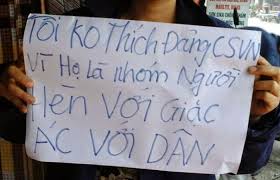 Tôi KO THÍCH ĐẢNG CSVN
VÌ HỌ LÀ NHÓM NGƯỜI
HÈN VỚI GIẶC
ÁC VỚI DÂN